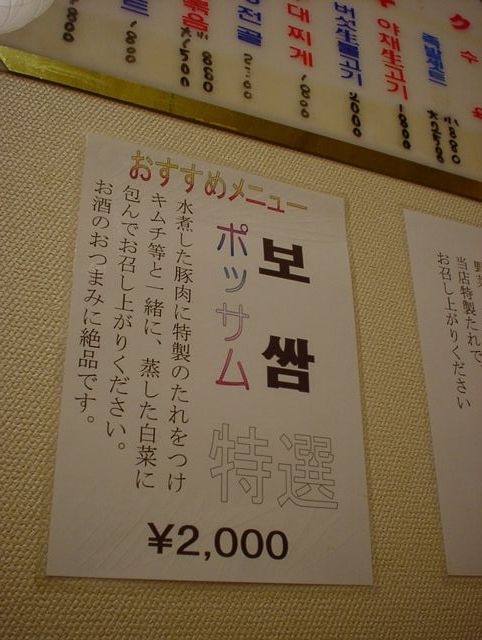 おすすめメニュー
보쌈
ポッサム
特選
水煮した豚肉に特製のたれをつけ
キムチ等と一緒に、蒸した白菜に
包んでお召し上がりください。
お酒のおつまみに絶品です。
¥2,000
당店特製たれで、
お召し上がりください
족발세트
小880
大2500
야재생고기
1800
버섯生불고기
2000
대찌게
1800
전골
볶음
小880
大1500
1800